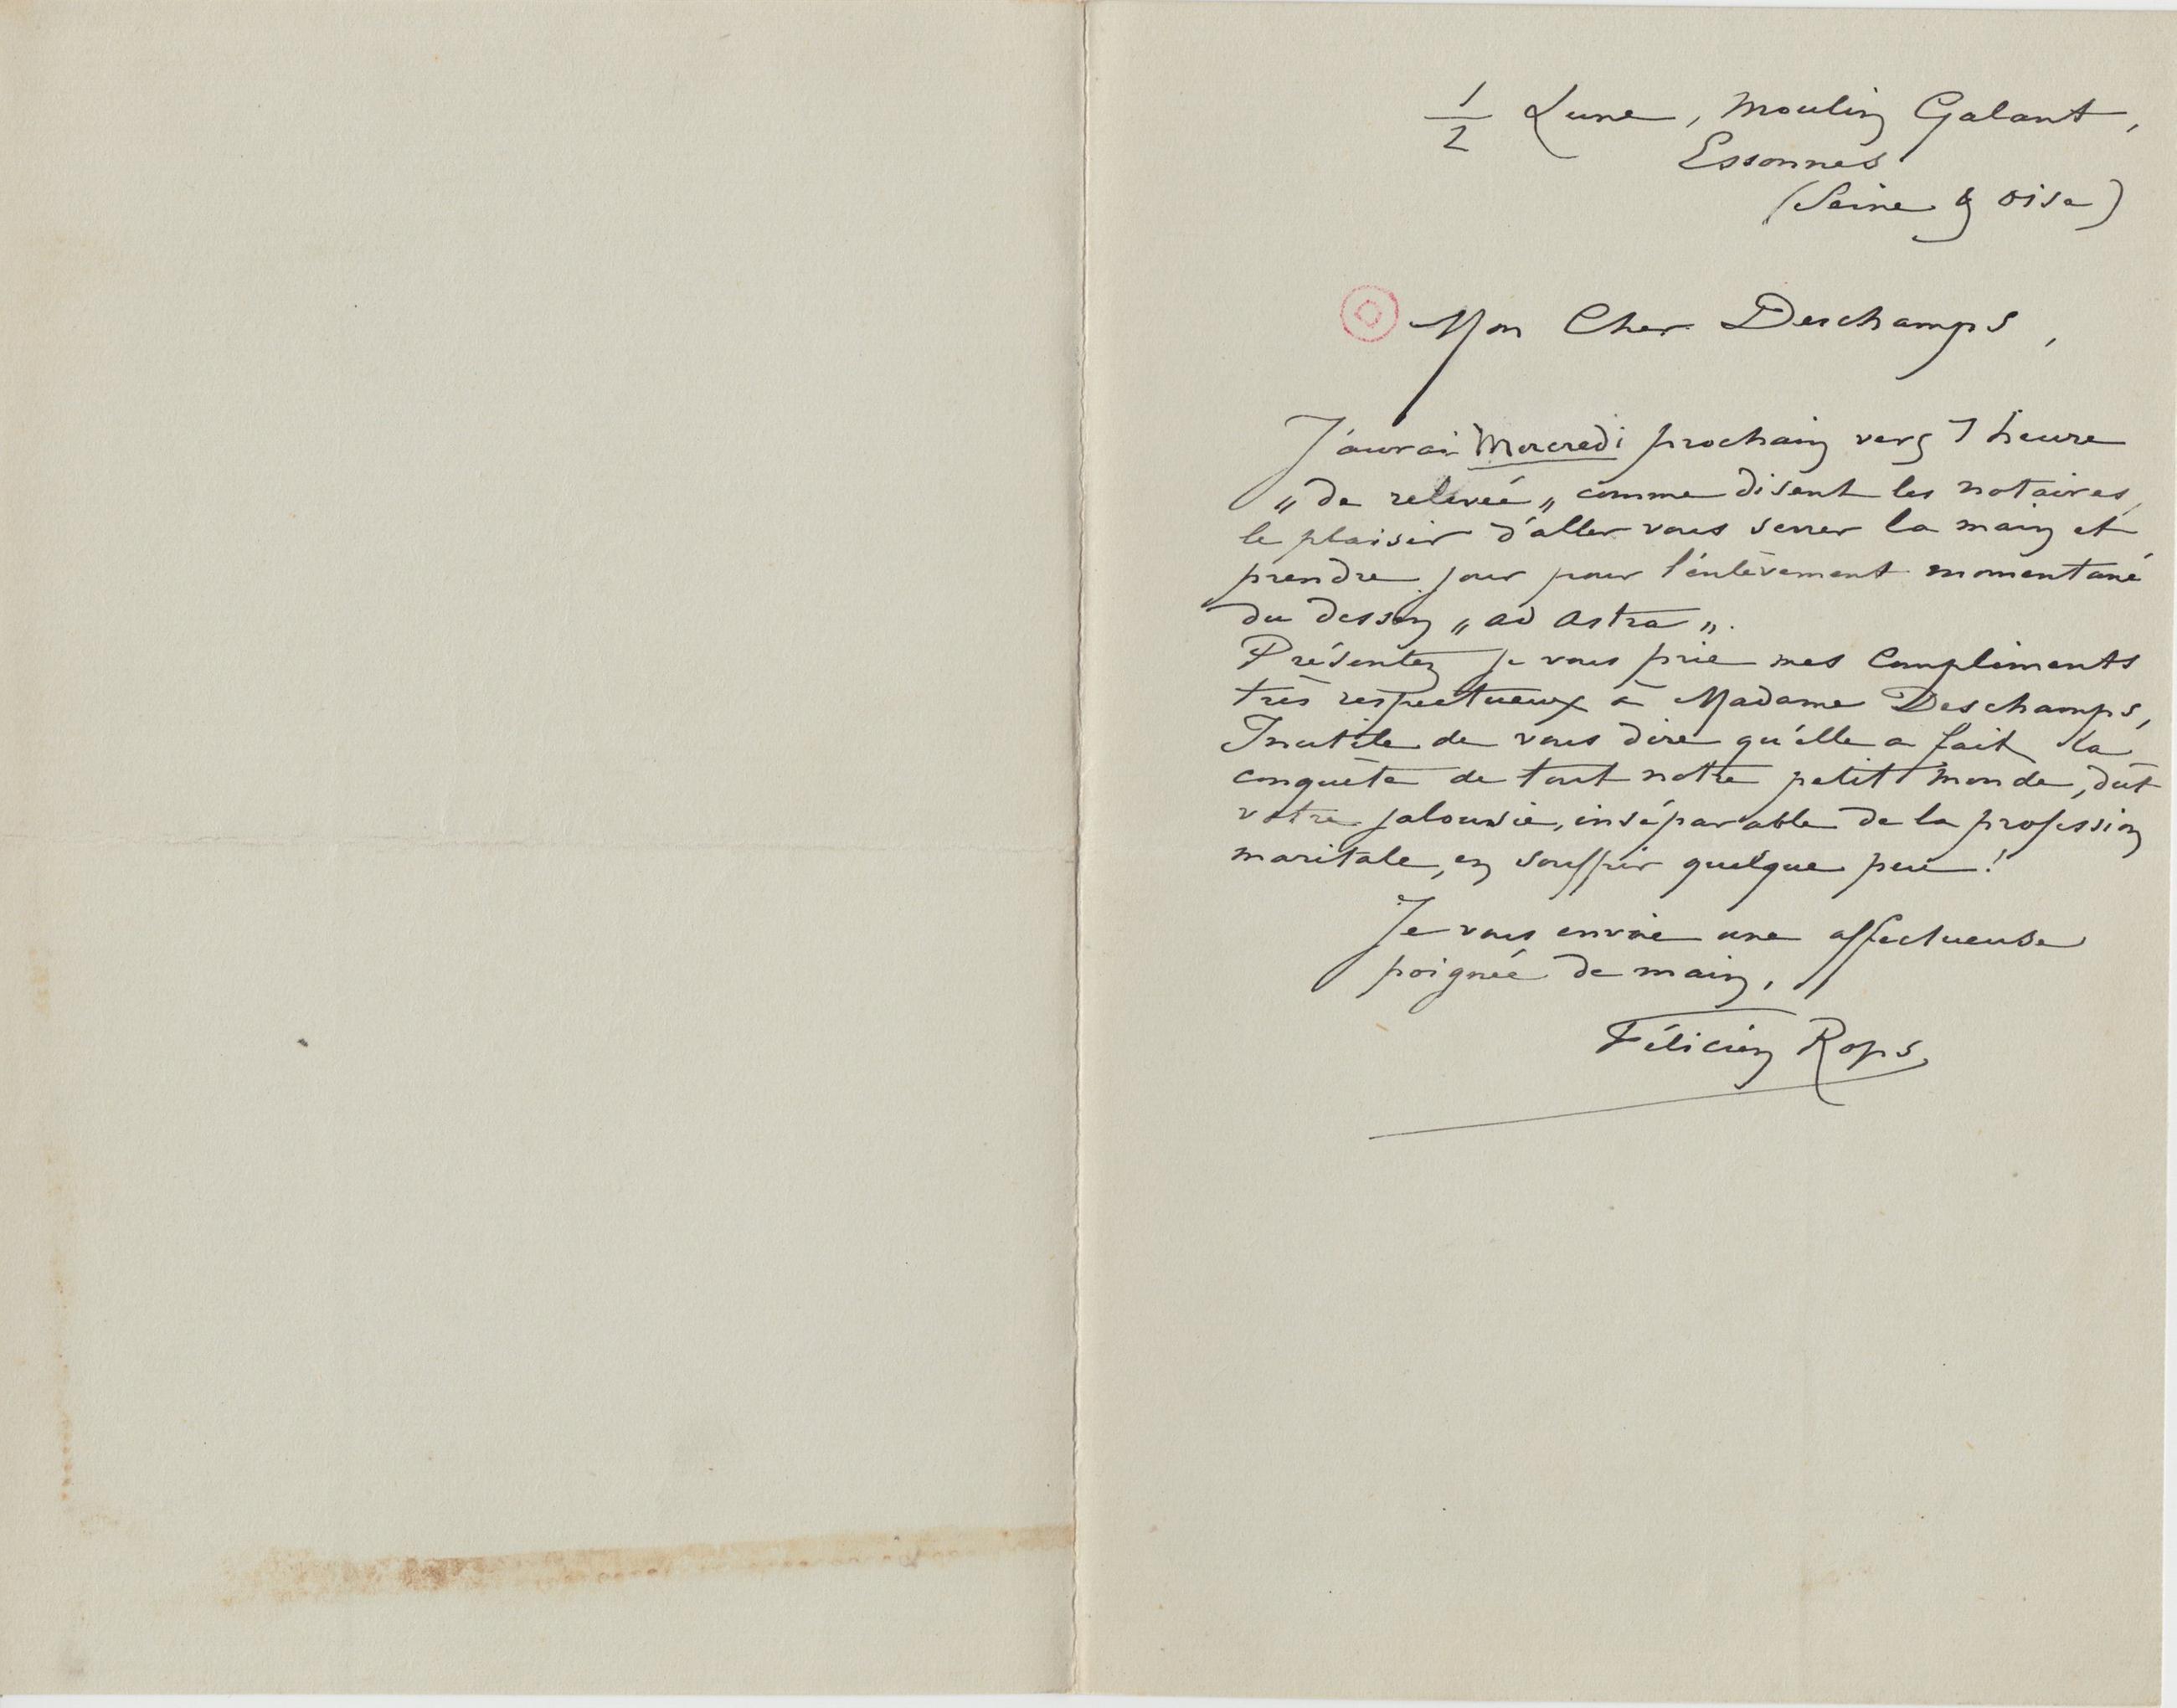 1/2 Lune, Moulin Galant,
Essonnes
(Seine & Oise)
Mon Cher Deschamps,
J'aurai Mercredi prochain vers 1 heure
„ de relevée „ comme disent les notaires,
le plaisir d'aller vous serrer la main et
prendre jour pour l'enlèvement momentané
du dessin „ ad astra „.
Présentez je vous prie mes Compliments
très respectueux à Madame Deschamps,
Inutile de vous dire qu'elle a fait la
conquête de tout notre petit monde, dût
votre jalousie, inséparable de la profession
maritale, en souffrir quelque peu !
Je vous envoie une affectueuse
poignée de main,
Félicien Rops